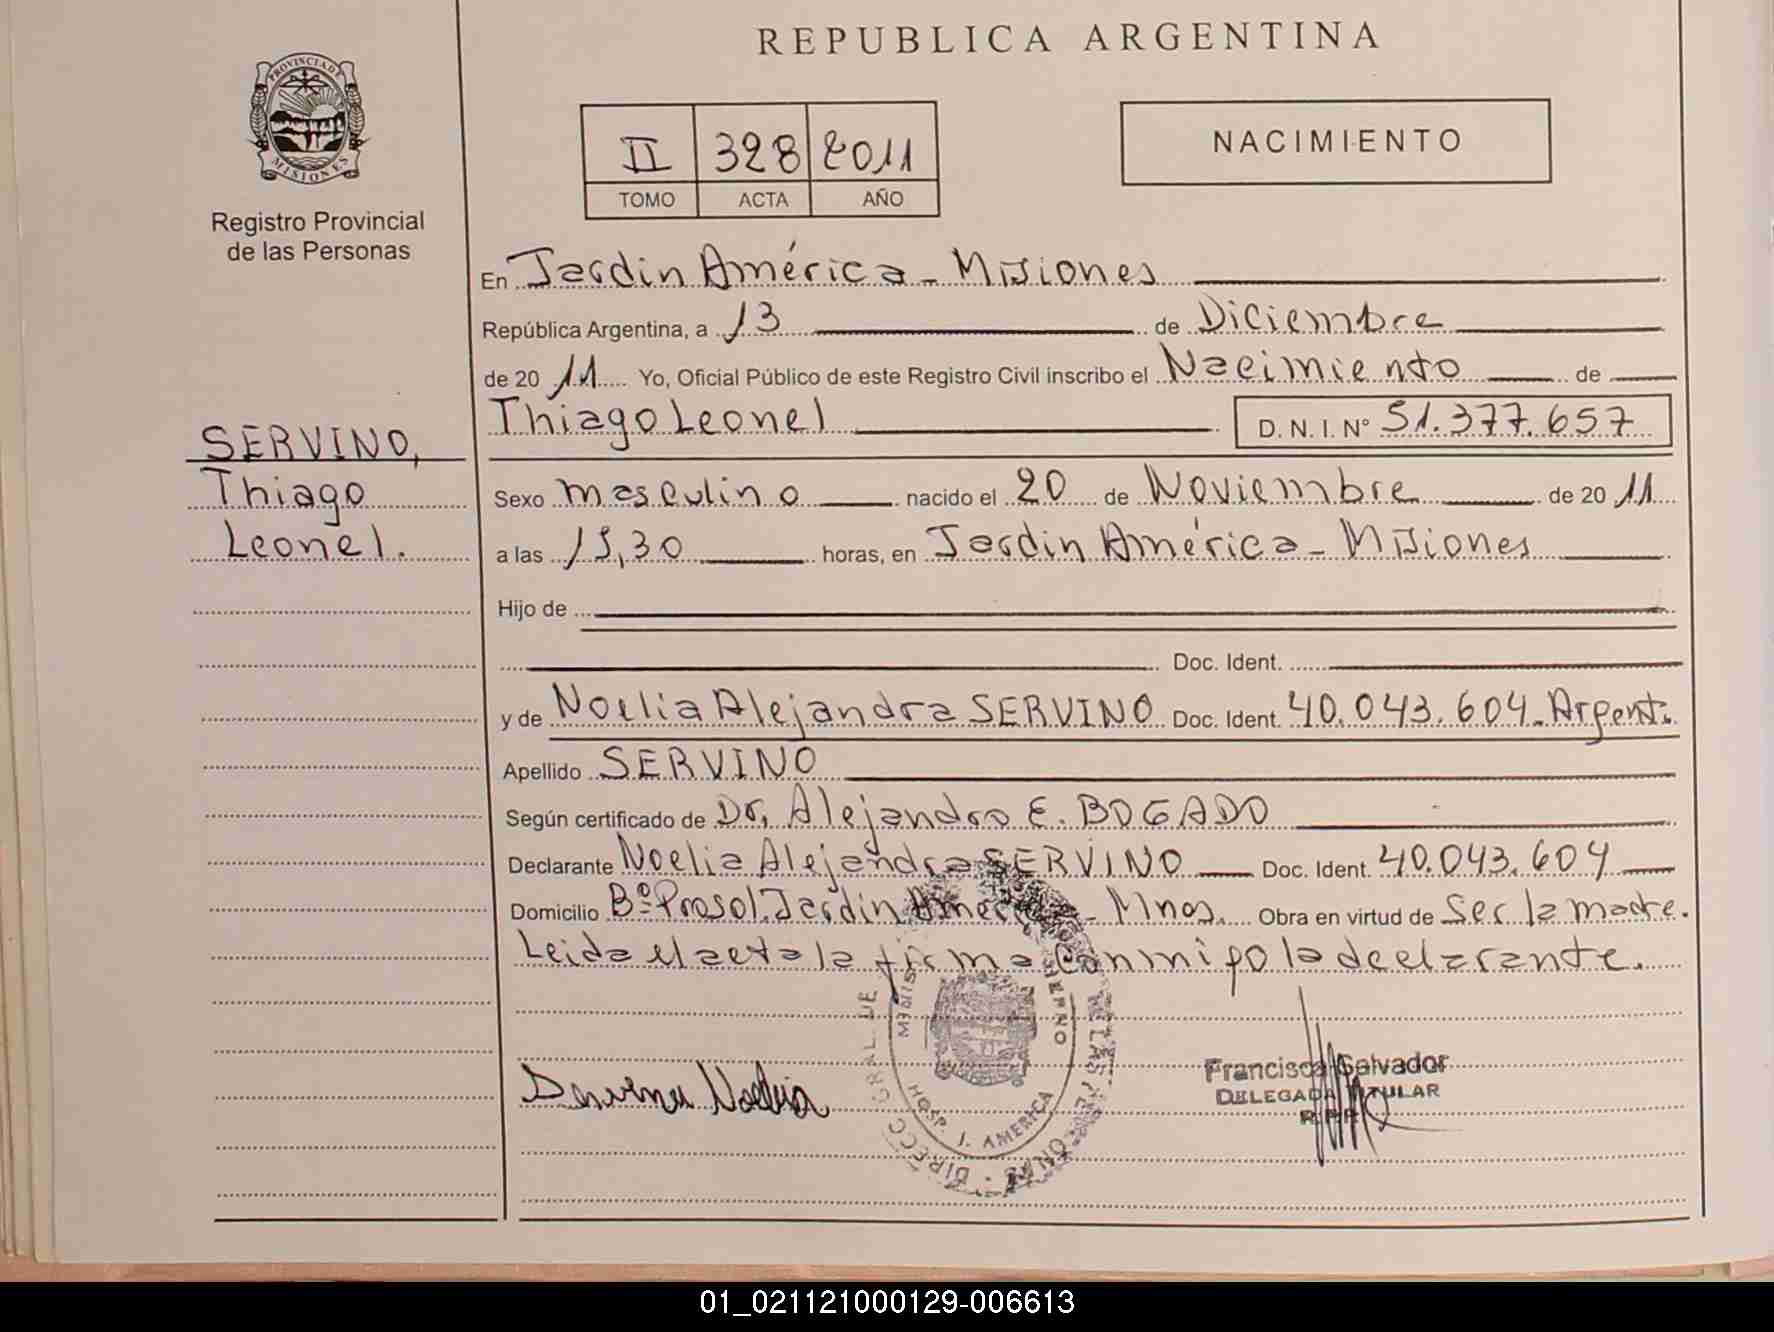 REPUBLICA ARGENTINA
PROVINCIA DE
MISIONES
Registro Provincial
de las Personas
II 328 2011
TOMO ACTA AÑO
NACIMIENTO
En Jardin América - Misiones
República Argentina, a 13 de Diciembre
de 20 11 Yo, Oficial Público de este Registro Civil inscribo el Nacimiento de
Thiago Leonel D. N. I. N° 51.377.657
SERVINO,
Thiago
Leonel.
Sexo masculino nacido el 20 de Noviembre de 20 11
a las 15,30 horas, en Jardin América - Misiones
Hijo de
Doc. Ident.
y de Noelia Alejandra SERVINO Doc. Ident. 40.043.604. Argent.
Apellido SERVINO
Según certificado de Dr. Alejandro E. BOGADO
Declarante Noelia Alejandra SERVINO Doc. Ident. 40.043.604
Domicilio Bº Prosol. Jardin América - Mnes. Obra en virtud de Ser la madre.
Leida el acta la firma Conmigo la declarante.
HOSP. J. AMERICA
Servino Noelia
Francisca Salvador
DELEGADA TITULAR
R.P.P.
01_021121000129-006613